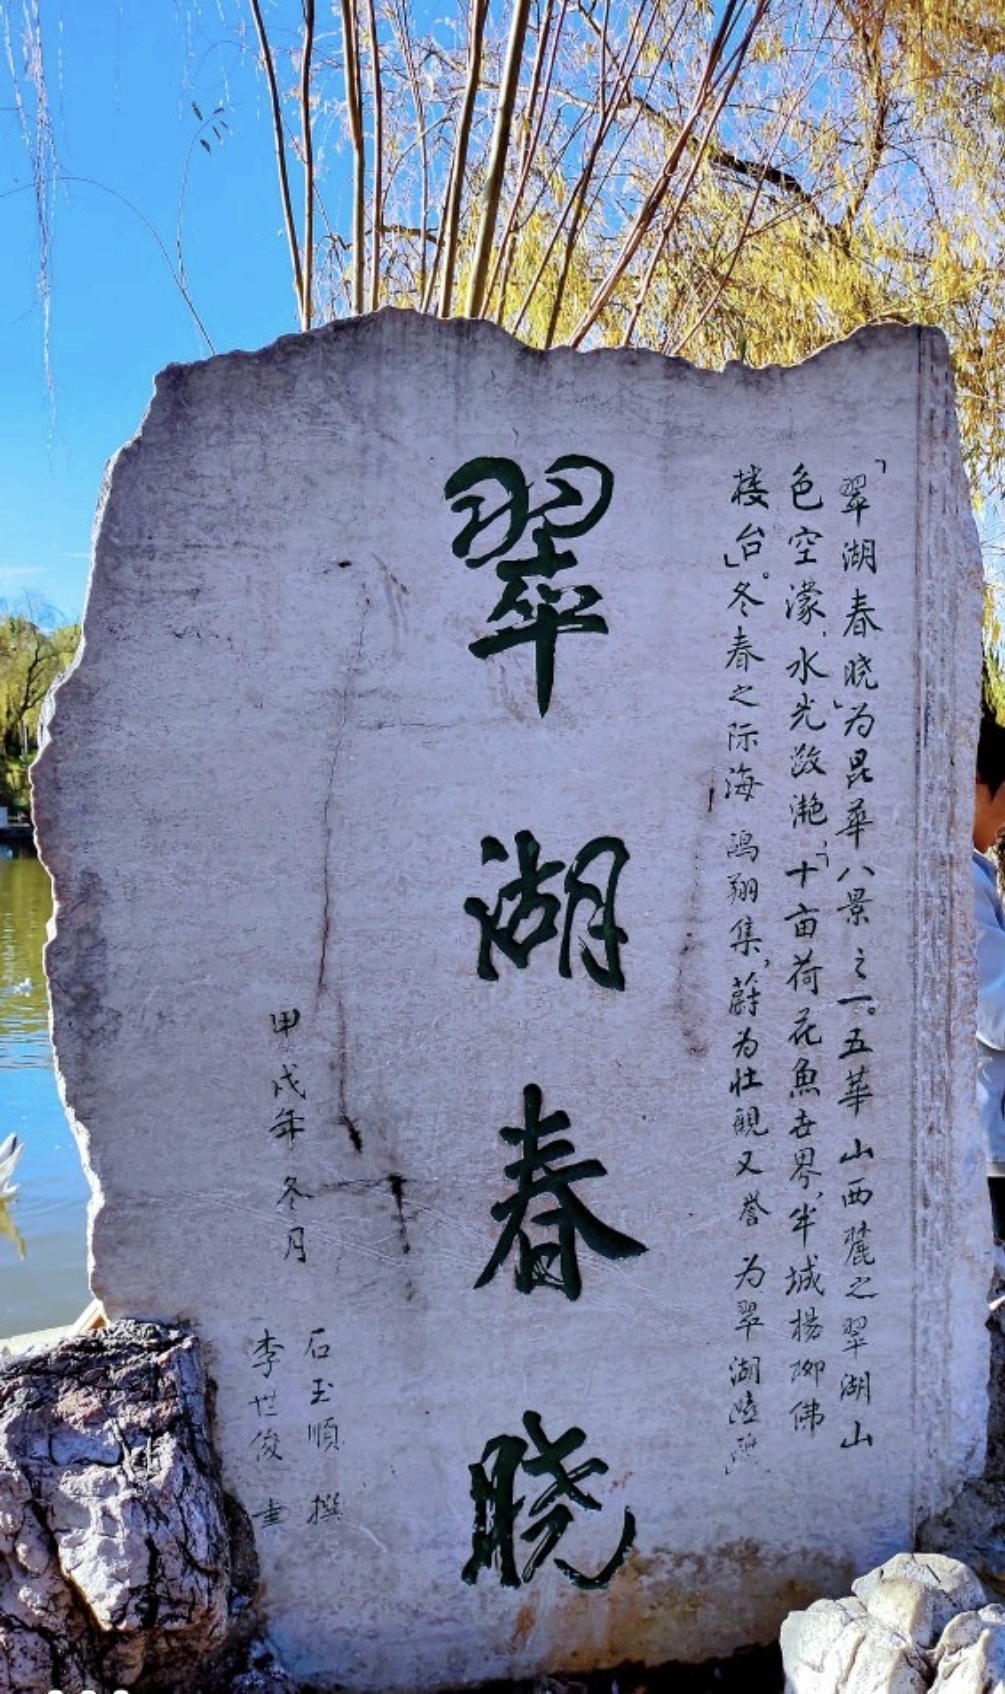 「翠湖春晓」为昆華八景之一。五華山西麓之翠湖山
色空濛，水光潋滟，「十亩荷花魚世界，半城楊柳佛
楼台」。冬春之际海鸥翔集，蔚为壮觀又誉为翠湖
翠湖春晓
甲戌年冬月
石玉順 撰
李世俊 書